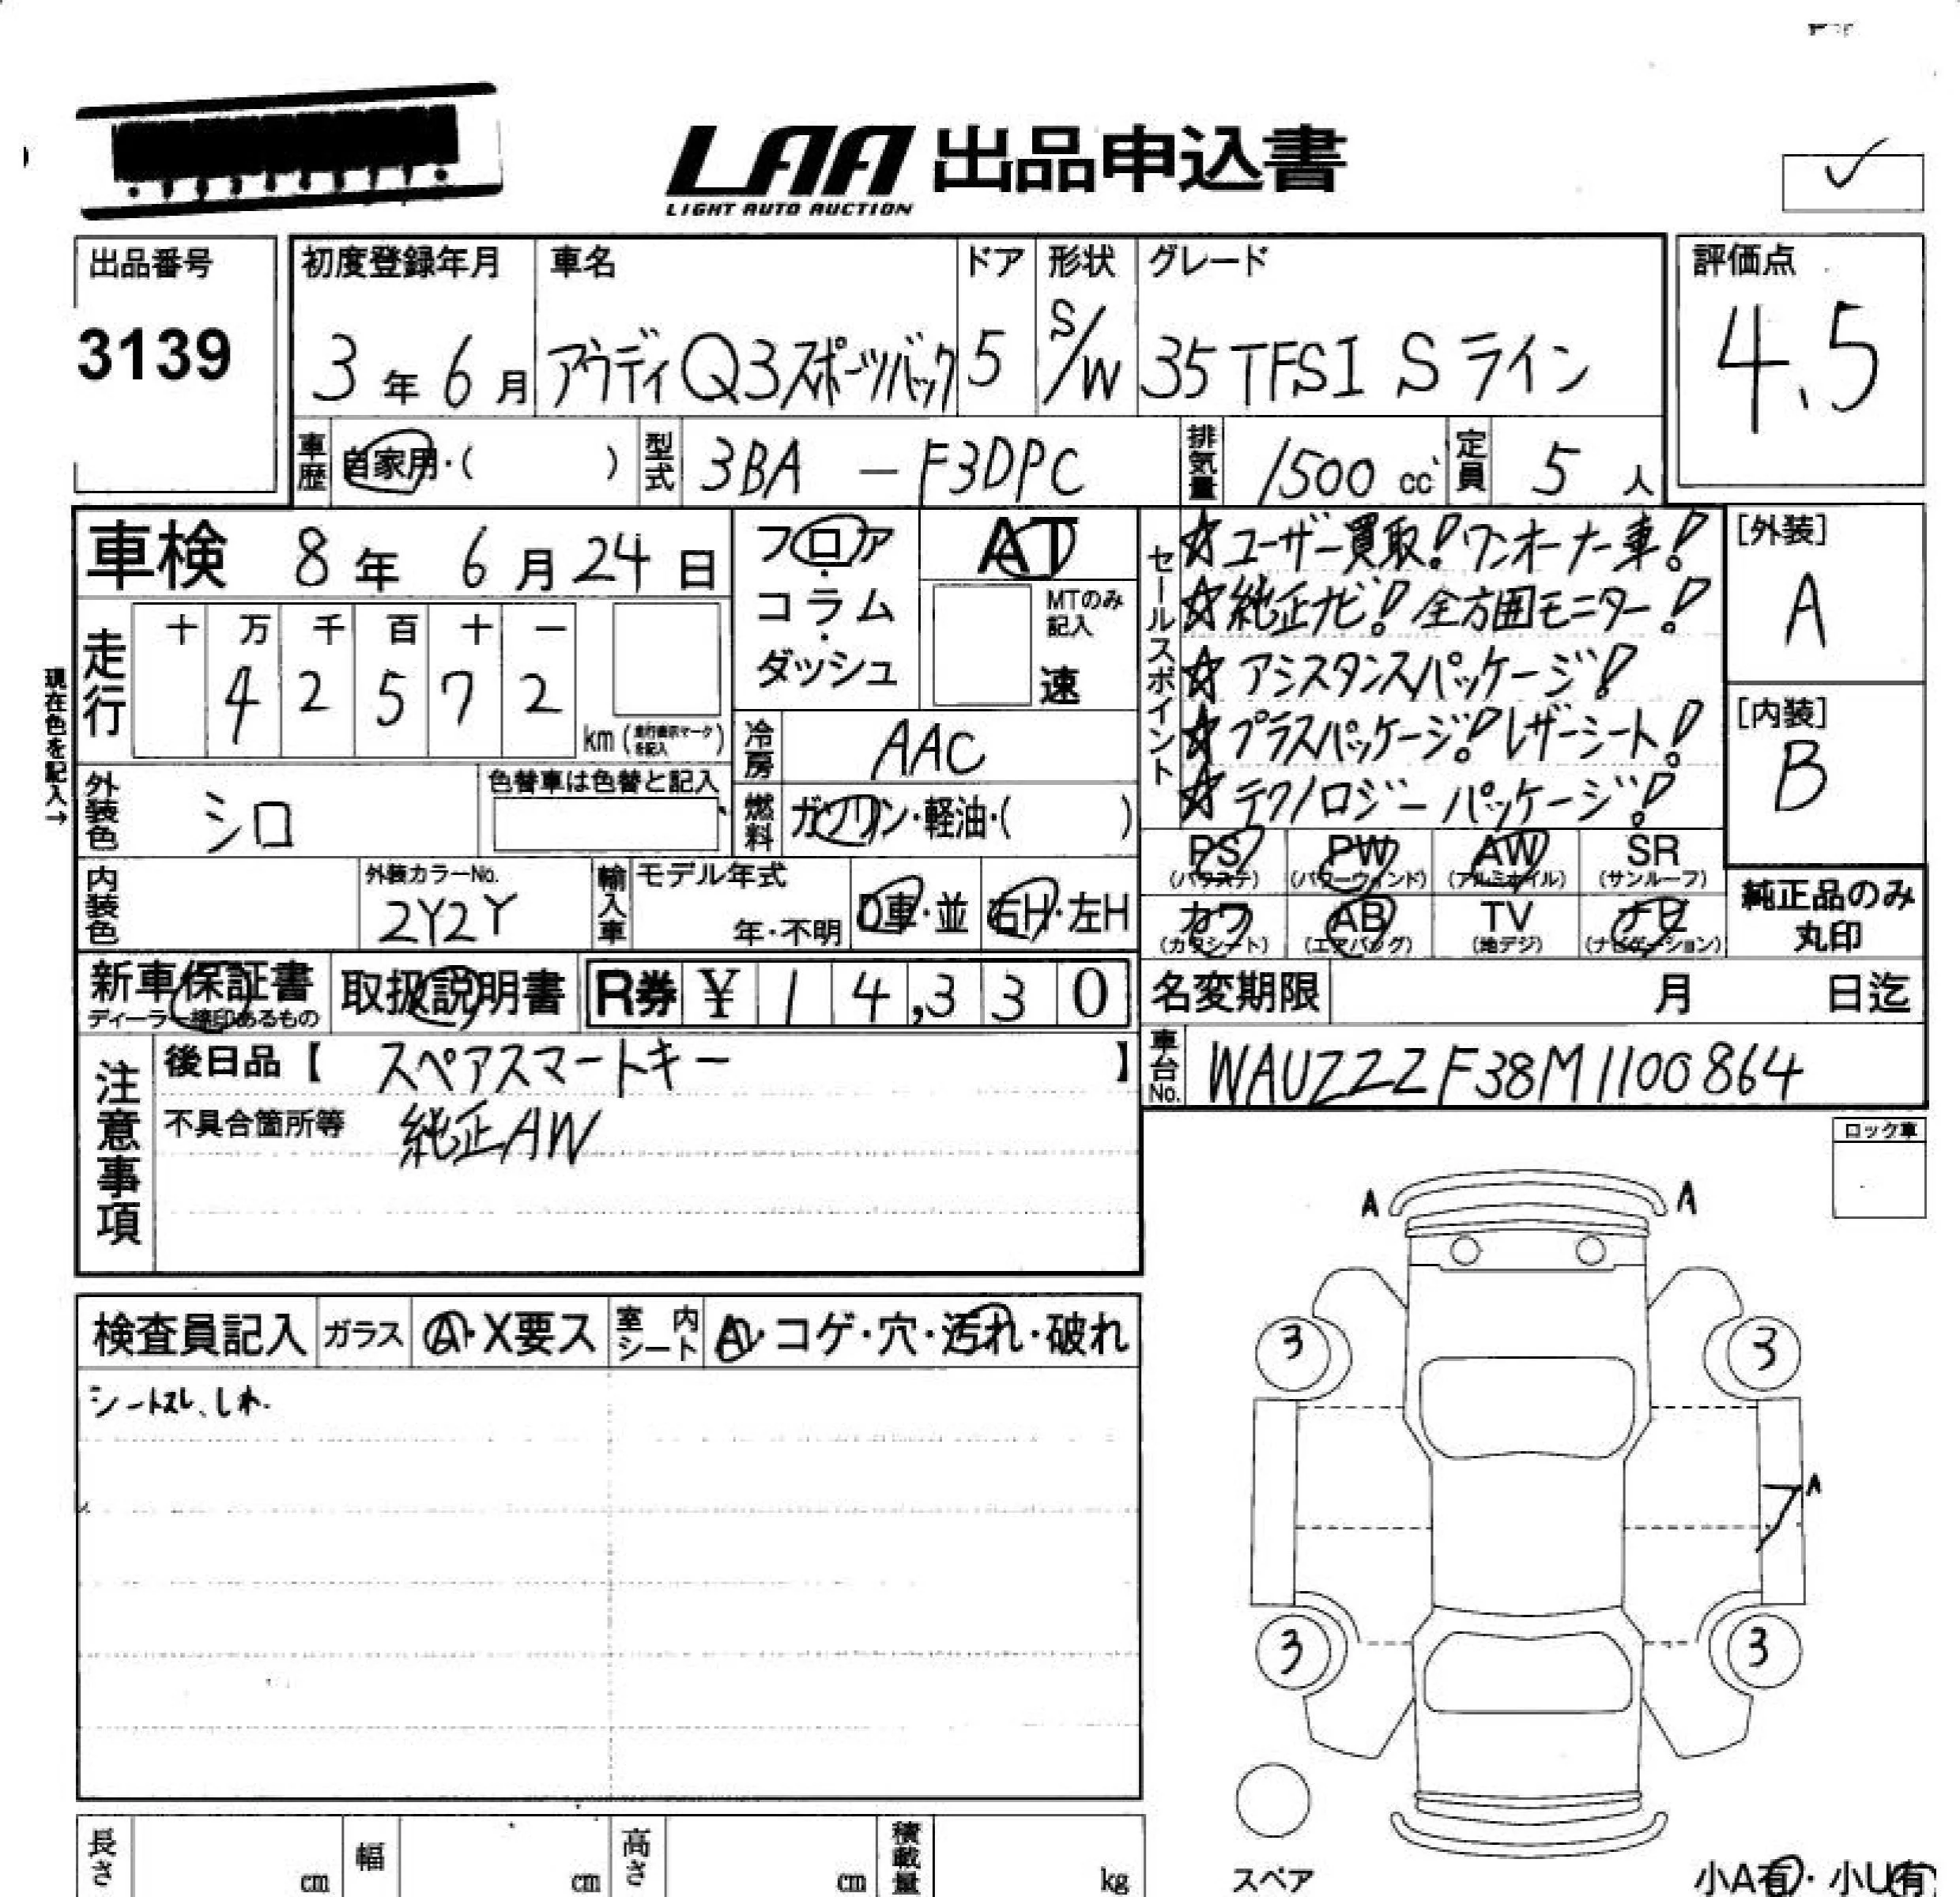 LAA 出品申込書
LIGHT AUTO AUCTION
出品番号
3139
初度登録年月 車名 ドア 形状 グレード 評価点
3年 6月 アウディQ3スポーツバック 5 S/W 35TFSI Sライン 4.5
車歴 自家用・( ) 型式 3BA - F3DPC 排気量 1500 cc 定員 5 人
車検 8年 6月 24日
フロア・コラム・ダッシュ
AT
MTのみ記入
速
セールスポイント
☆ユーザー買取!ワンオーナー車!
☆純正ナビ!全方囲モニター!
☆アシスタンスパッケージ!
☆プラスパッケージ!レザーシート!
☆テクノロジーパッケージ!
[外装]
A
[内装]
B
走行 十 万 千 百 十 一
4 2 5 7 2
km(走行表示マークを記入)
現在色を記入→
冷房 AAC
外装色 シロ 色替車は色替と記入
燃料 ガソリン・軽油・( )
PS (パワステ) PW (パワーウィンド) AW (アルミホイル) SR (サンルーフ)
カワ (カワシート) AB (エアバッグ) TV (地デジ) ナビ (ナビゲーション)
純正品のみ丸印
内装色 外装カラーNo. 2Y2Y 輸入車 モデル年式 年・不明 D車・並 右H・左H
新車保証書 ディーラー捺印あるもの 取扱説明書 R券 ¥ 14,330
名変期限 月 日迄
車台No. WAUZZZF38M1100864
注意事項
後日品【 スペアスマートキー 】
不具合箇所等 純正AW
ロック車
A A
3 3
A
3 3
検査員記入 ガラス A・X要ス 室内シート A・コゲ・穴・汚れ・破れ
シートスレ、しわ.
長さ cm 幅 cm 高さ cm 積載量 kg
スペア
小A有・小U有